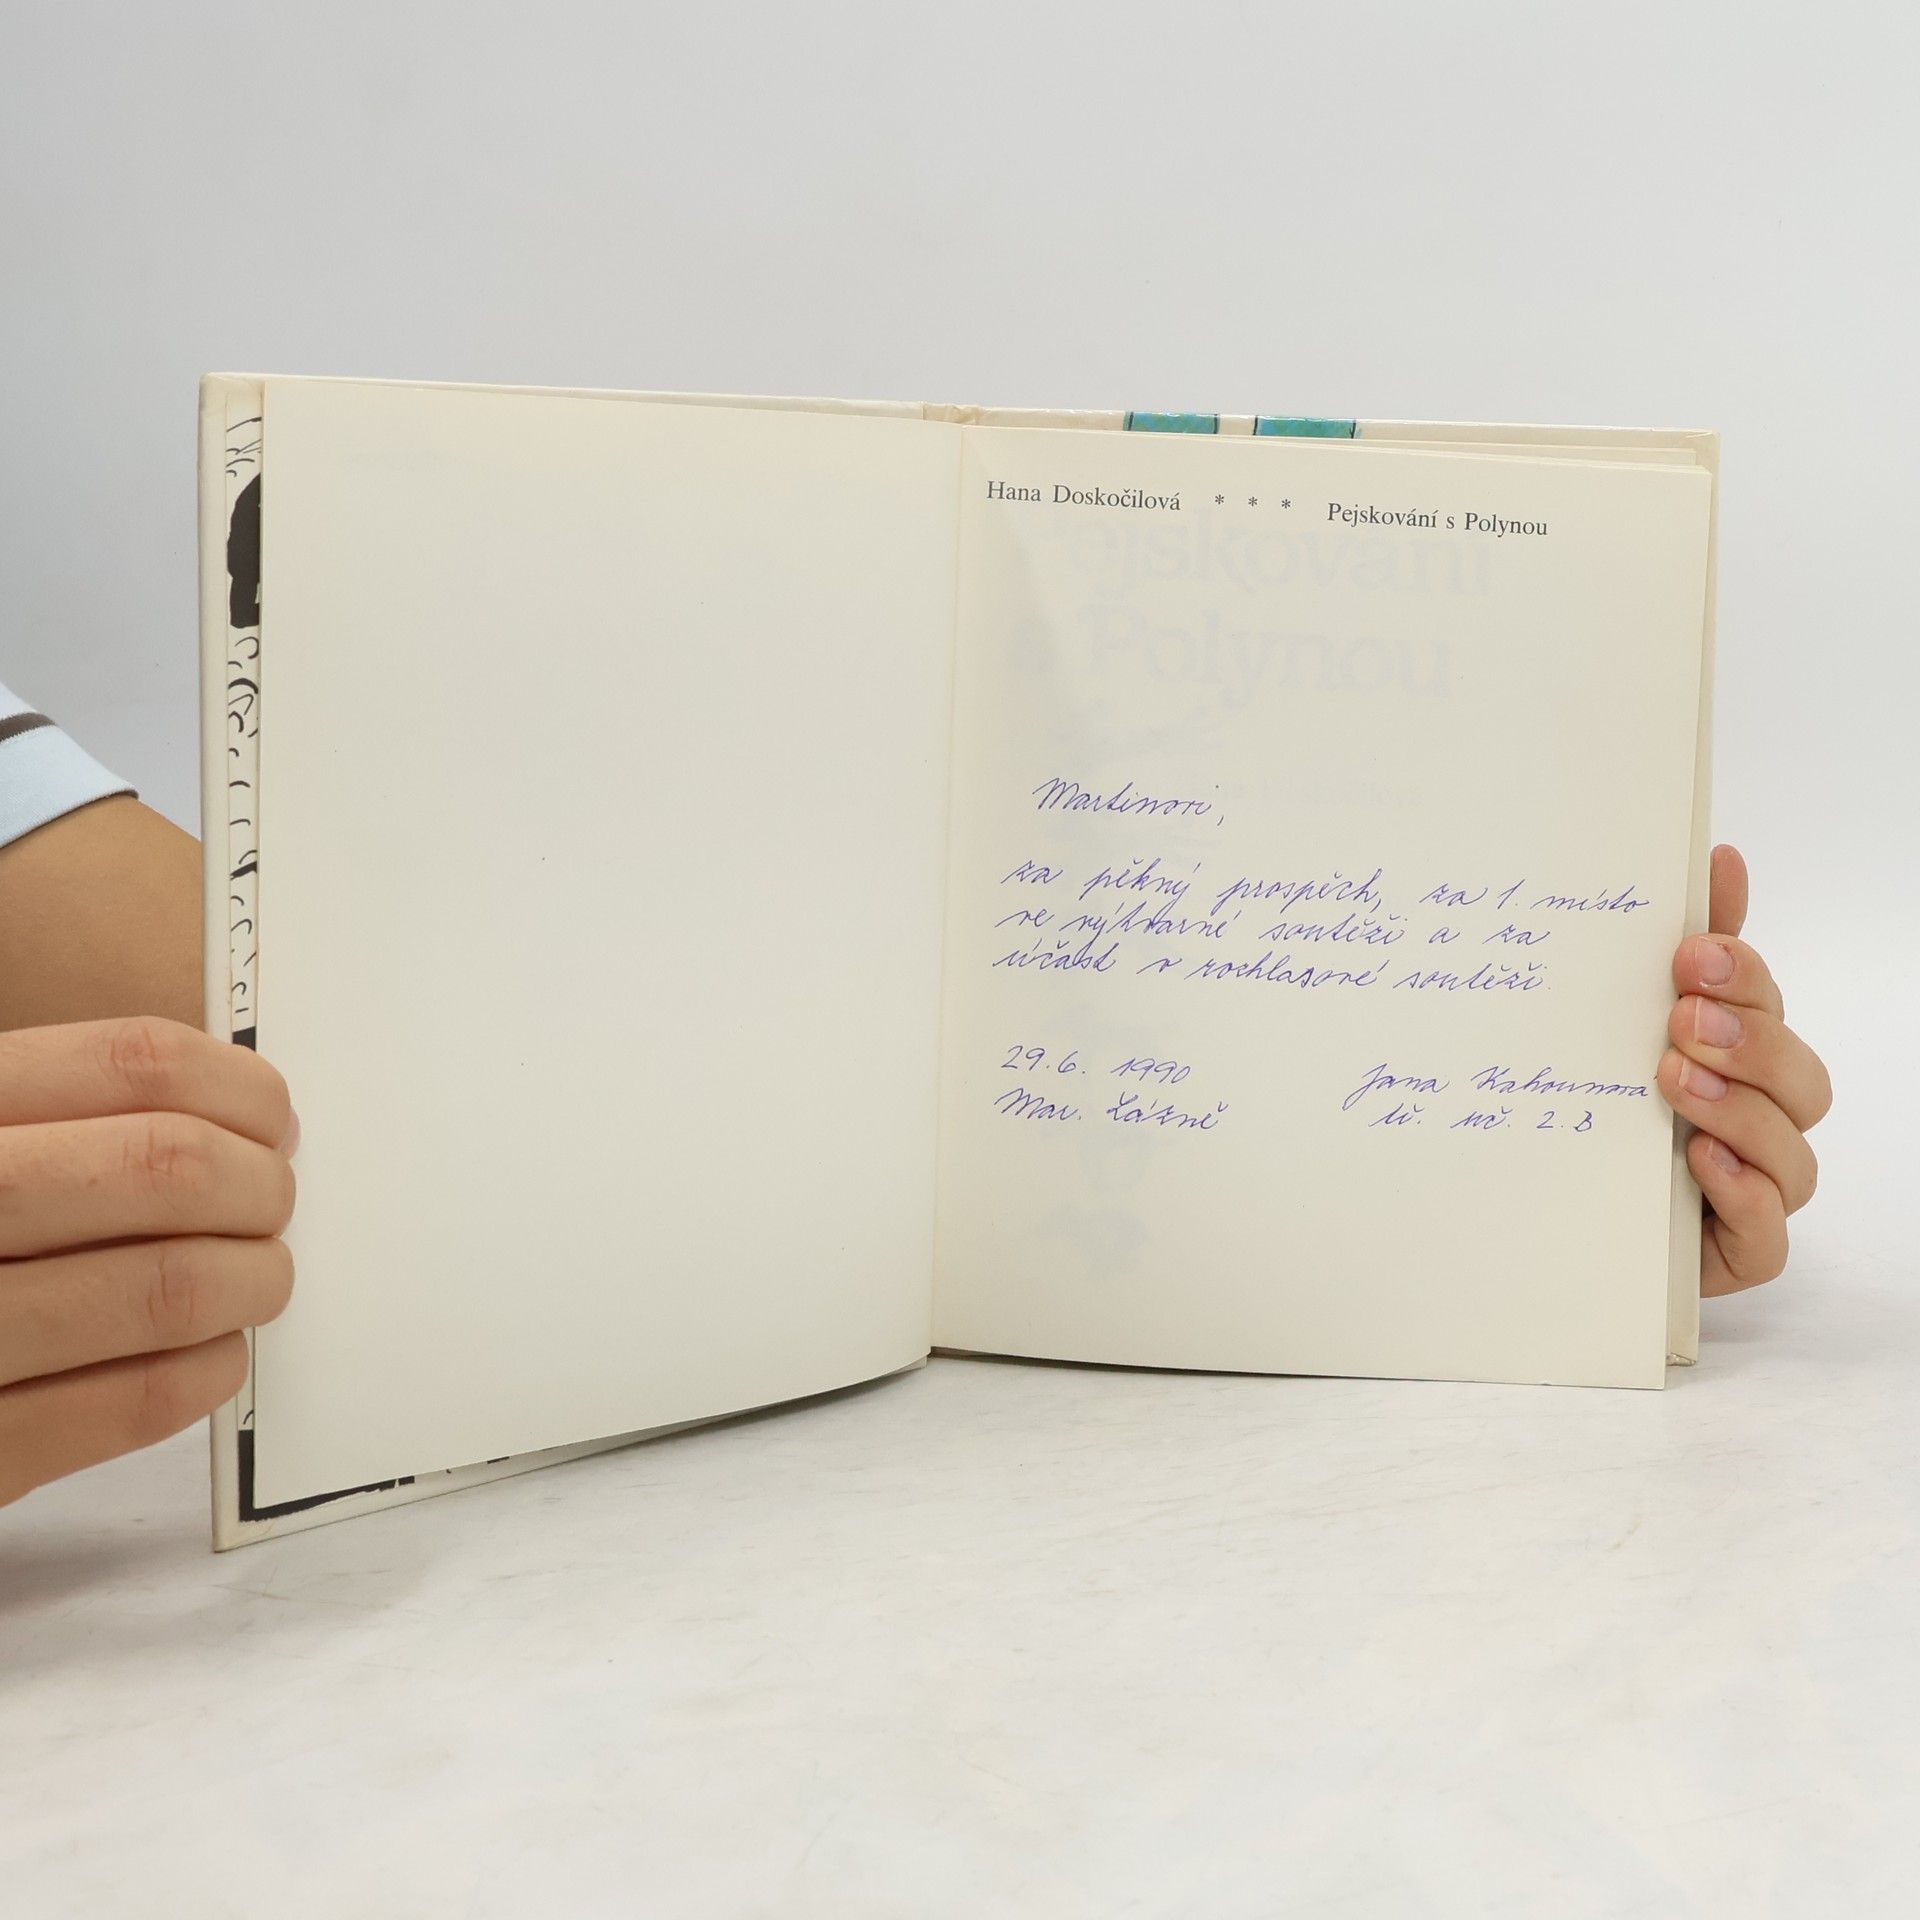 Hana Doskočilová * * * Pejskování s Polynou
Pejskování
s Polynou
Martinovi,
za pěkný prospěch, za 1. místo
ve výtvarné soutěži a za
účast v rozhlasové soutěži.
29.6. 1990
Mar. Lázně
Jana Kahounová
tř. uč. 2.B